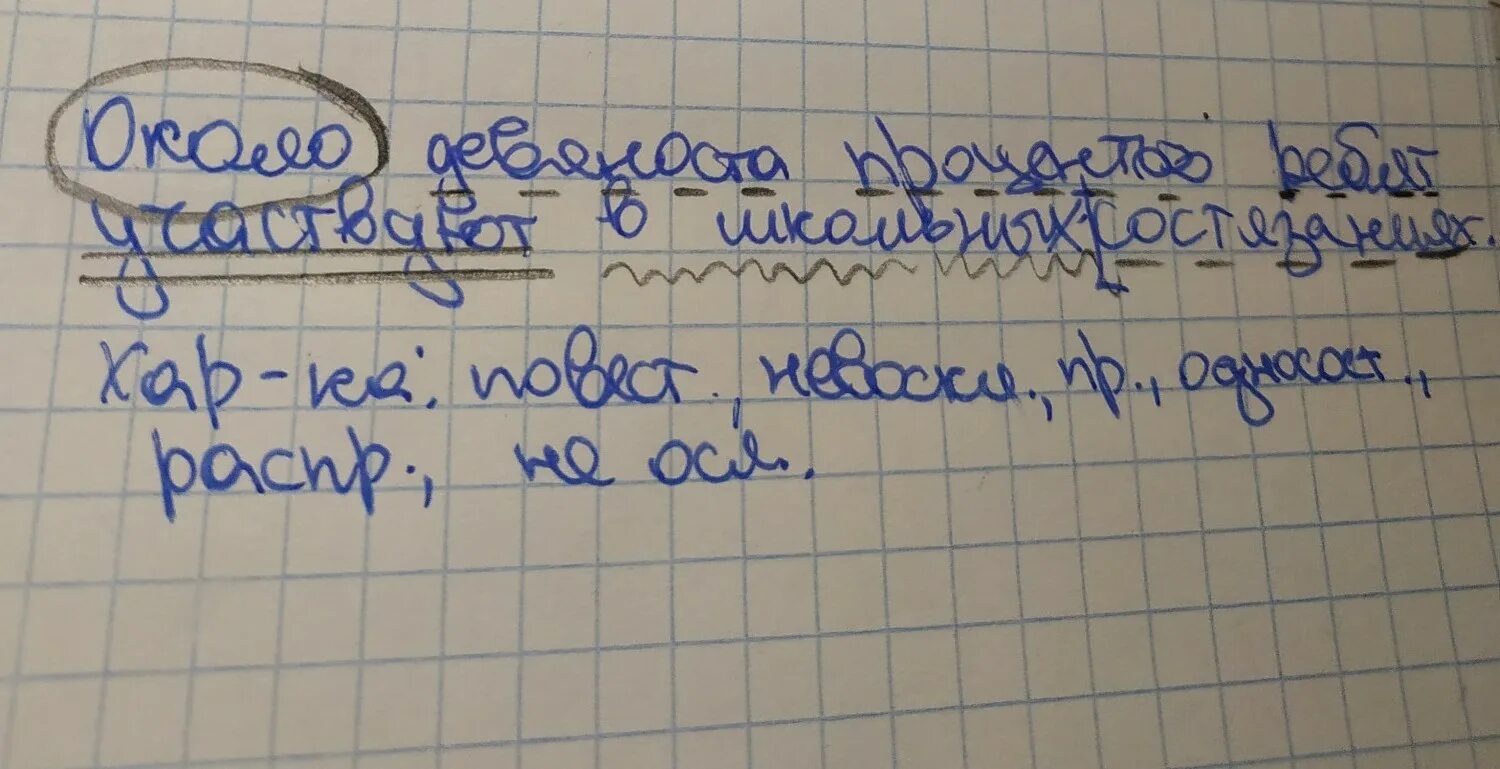 Около девяноста процентов ребят
участвуют в школьных состязаниях.
Хар-ка: повест., невоскл., пр., односост.,
распр., не осл.